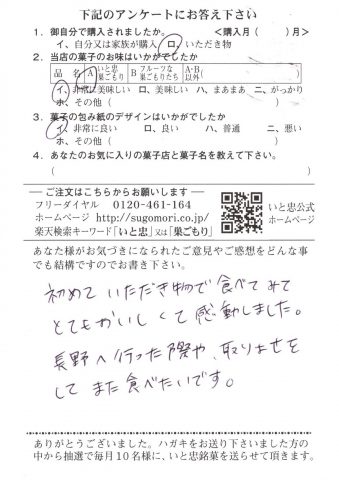 下記のアンケートにお答え下さい
1. 御自分で購入されましたか。 <購入月( )月>
イ、自分又は家族が購入 ロ、いただき物
2. 当店の菓子のお味はいかがでしたか
品 名 A いと忠巣ごもり B フルーツな巣ごもりたち A・B以外( )
イ、非常に美味しい ロ、美味しい ハ、まあまあ ニ、がっかり
ホ、その他( )
3. 菓子の包み紙のデザインはいかがでしたか
イ、非常に良い ロ、良い ハ、普通 ニ、悪い
ホ、その他( )
4. あなたのお気に入りの菓子店と菓子名を教えて下さい。
( )
ご注文はこちらからお願いします
フリーダイヤル 0120-461-164
ホームページ http://sugomori.co.jp/
楽天検索キーワード「いと忠」又は「巣ごもり」
いと忠公式
ホームページ
あなた様がお気づきになられたご意見やご感想をどんな事
でも結構ですのでお書き下さい。
初めていただき物で食べてみて
とてもおいしくて感動しました。
長野へ行った際や、取りよせを
してまた食べたいです。
ありがとうございました。ハガキをお送り下さいました方の
中から抽選で毎月10名様に、いと忠銘菓を送らせて頂きます。